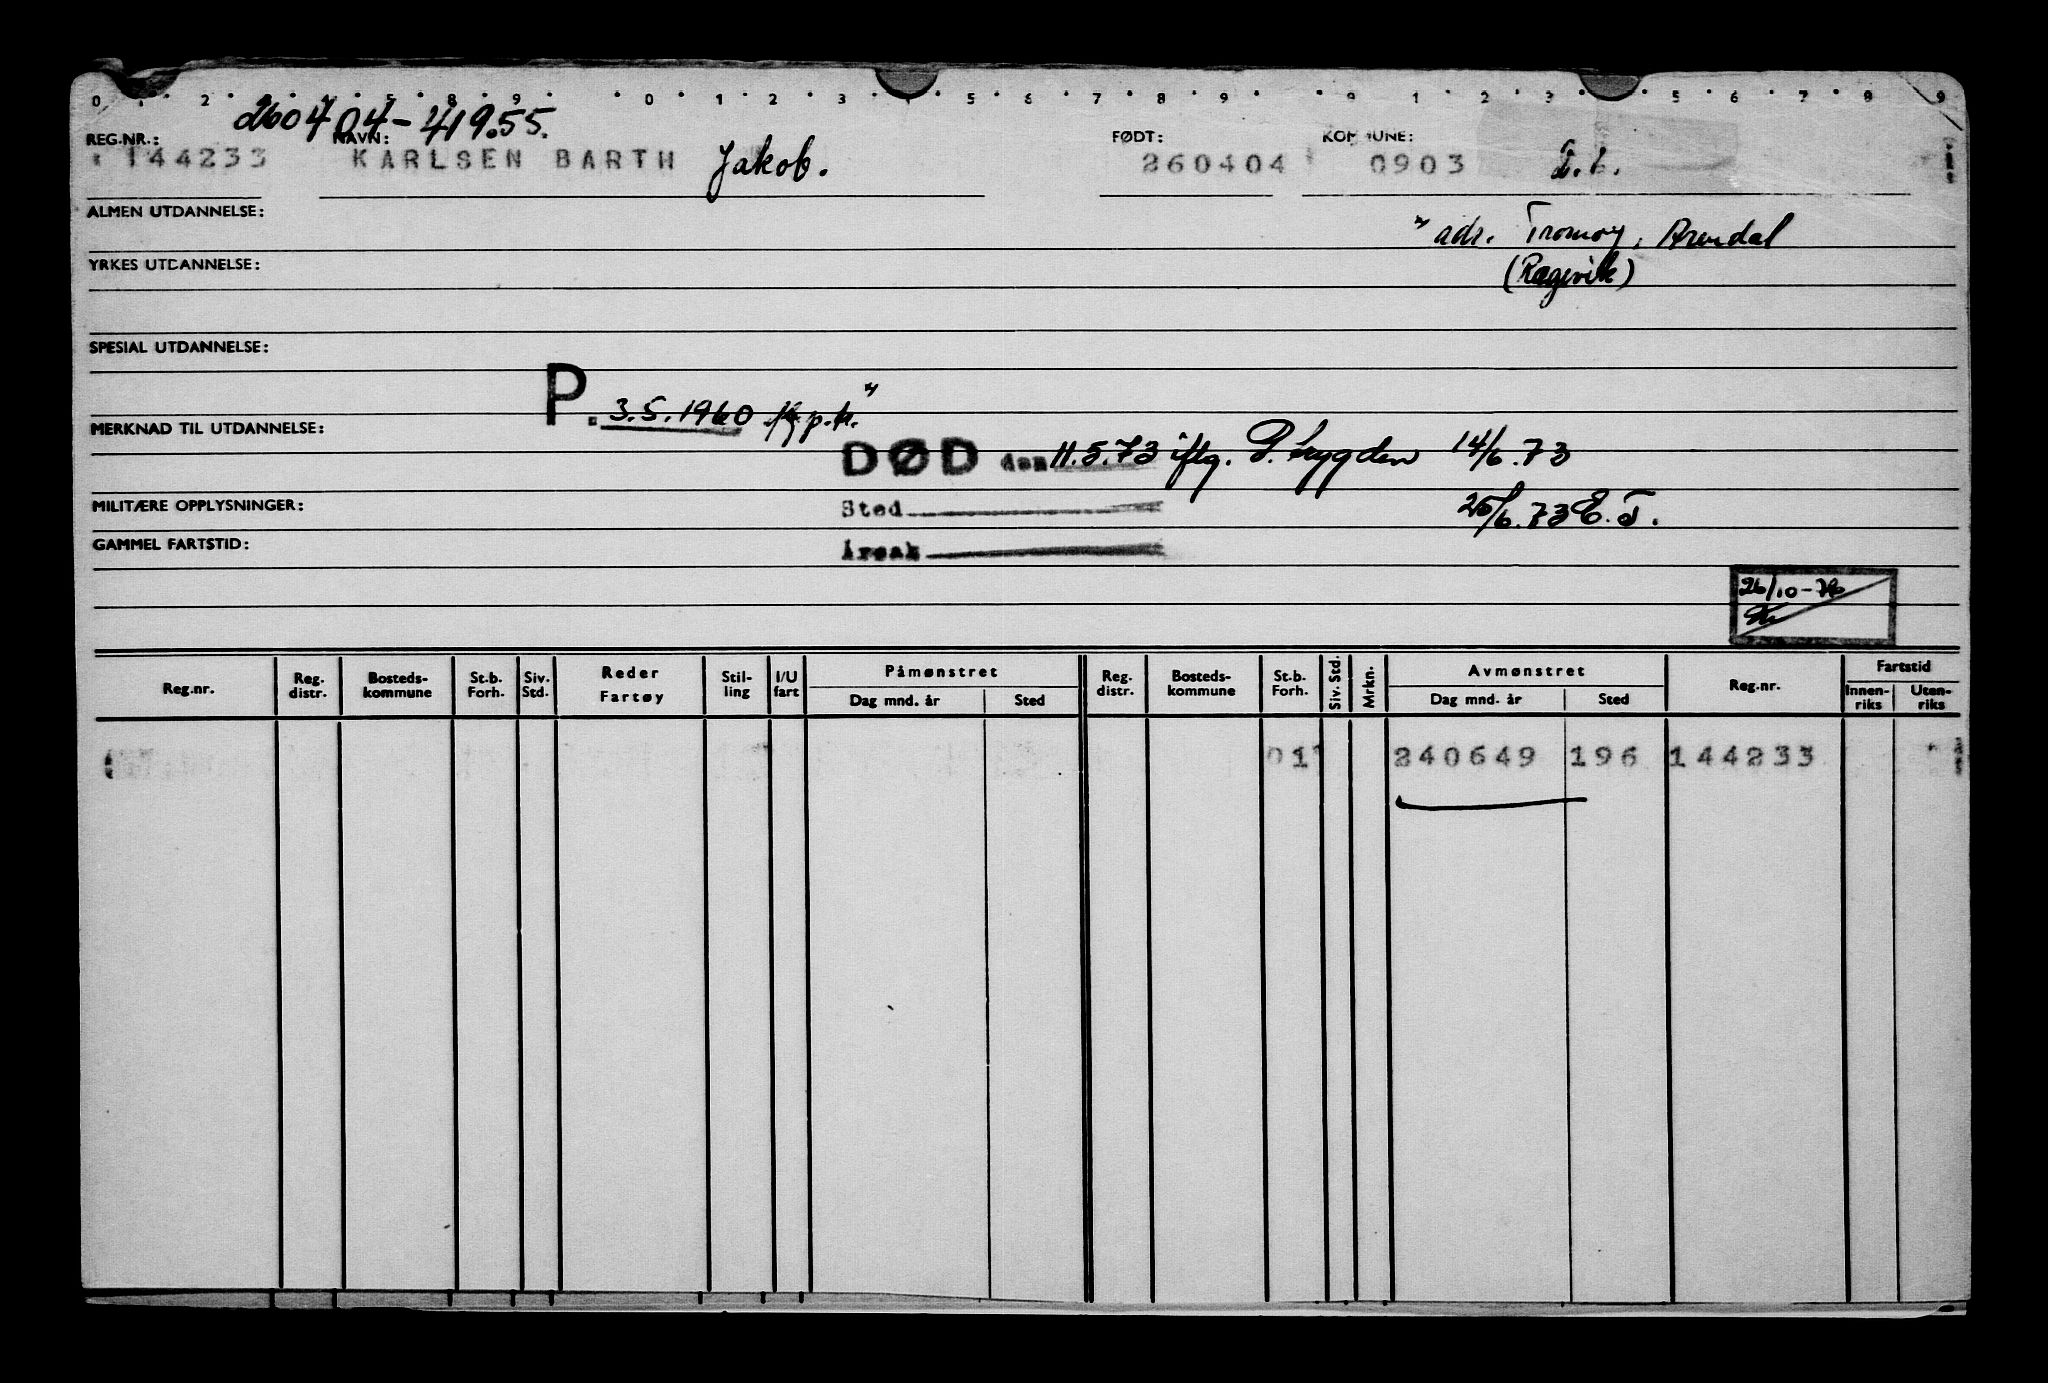 0 1 2 8 9 0 1 2 3 4 5 6 7 8 9 1 2 3 5 6 7 8 9
260404-41955.
REG.NR.: NAVN: FØDT: KOMMUNE:
144233 KARLSEN BARTH Jakob. 260404 0903
ALMEN UTDANNELSE:
" adr. Tromøy, Arendal
YRKES UTDANNELSE:
(Rægevik)
SPESIAL UTDANNELSE:
P. 3.5.1960 p.k."
MERKNAD TIL UTDANNELSE:
DØD den 11.5.73 iflg. P. trygden 14/6.73
MILITÆRE OPPLYSNINGER: Sted 25/6.73 E.T.
GAMMEL FARTSTID: Årsak
26/10-76
Reg.nr. Reg. distr. Bosteds-kommune St.b. Forh. Siv. Std. Reder Fartøy Stil-ling I/U fart Påmønstret Dag mnd. år Sted Reg. distr. Bosteds-kommune St.b. Forh. Siv. Std. Mrkn. Avmønstret Dag mnd. år Sted Reg.nr. Fartstid Innen-riks Uten-riks
01 240649 196 144233